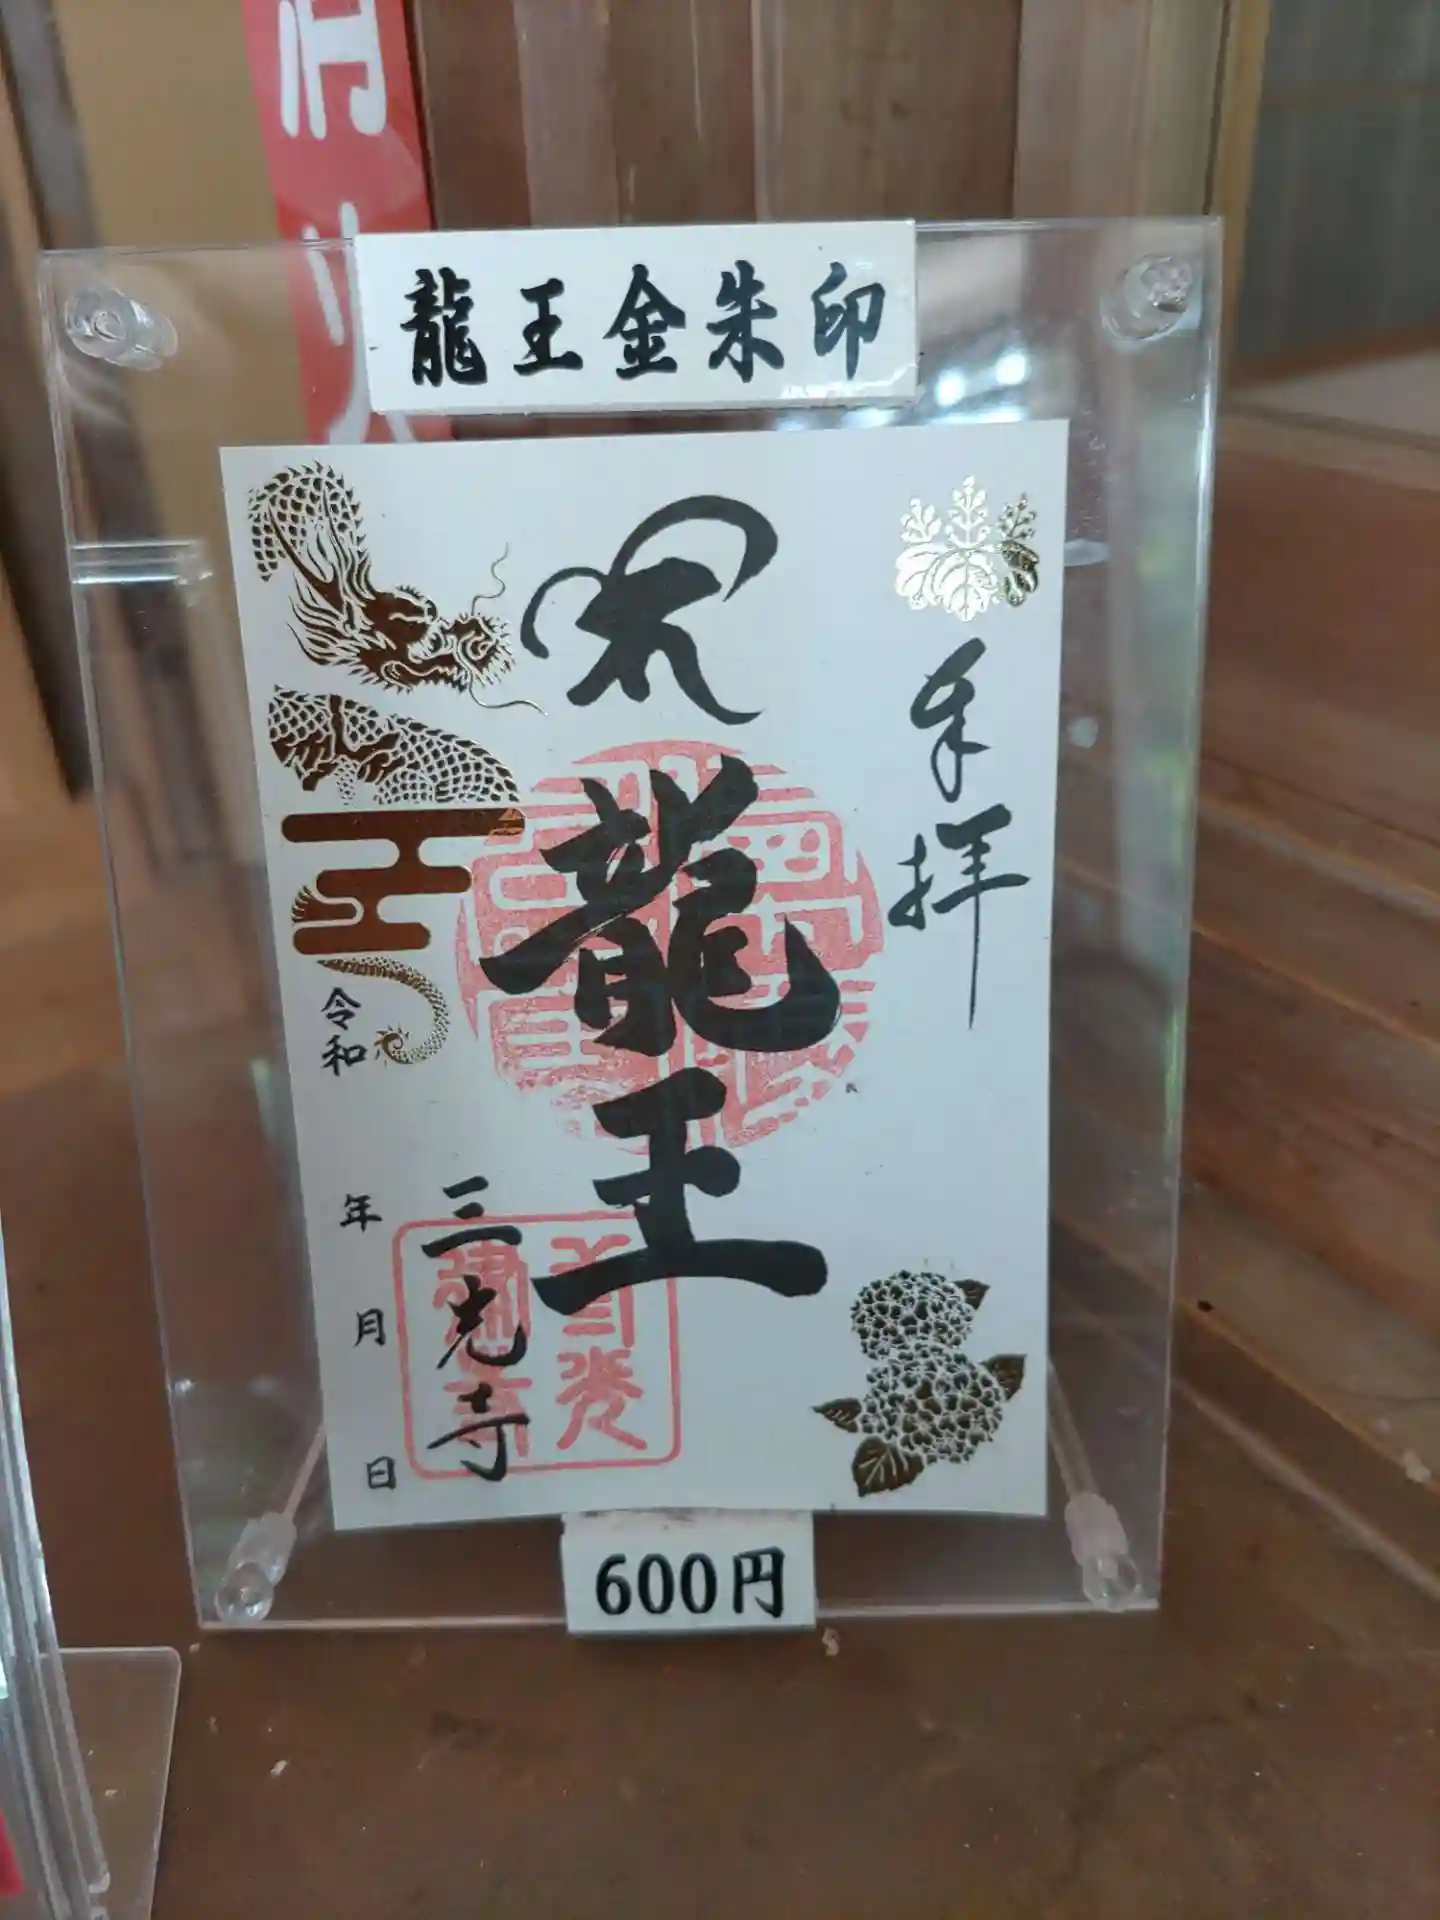 龍王金朱印
奉拝
龍王
三光寺
令和
年
月
日
600円